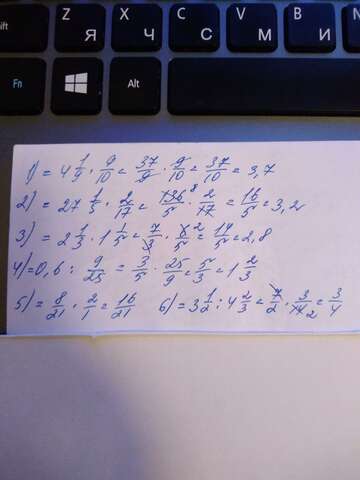 Shift Z Я X Ч C С V М B И
Fn Alt
1) = 4 1/9 · 9/10 = 37/9 · 9/10 = 37/10 = 3,7
2) = 27 1/5 · 2/17 = 136 8/5 · 2/17 = 16/5 = 3,2
3) = 2 1/3 · 1 1/5 = 7/3 · 6 2/5 = 14/5 = 2,8
4) = 0,6 : 9/25 = 3/5 · 25/9 = 5/3 = 1 2/3
5) = 8/21 · 2/1 = 16/21 6) = 3 1/2 : 4 2/3 = 7/2 · 3/14 2 = 3/4